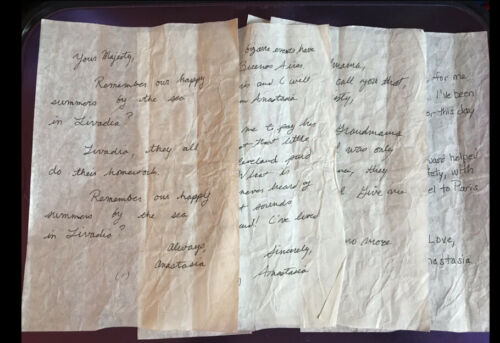 Your Majesty,
Remember our happy
summers by the sea
in Livadia?
Livadia, they all
do their homework.
Remember our happy
summers by the sea
in Livadia?
Always
Anastasia
bizarre events have
Buenos Aires
and I will
Anastasia
me to pay his
that little
Cleveland paid
What is
never heard of
sounds
and! I've lived
Sincerely,
Anastasia
call you that,
Grandmama
I was only
they
Give me
no more
for me
I've been
for this day
helped
with
to Paris
Love,
Anastasia